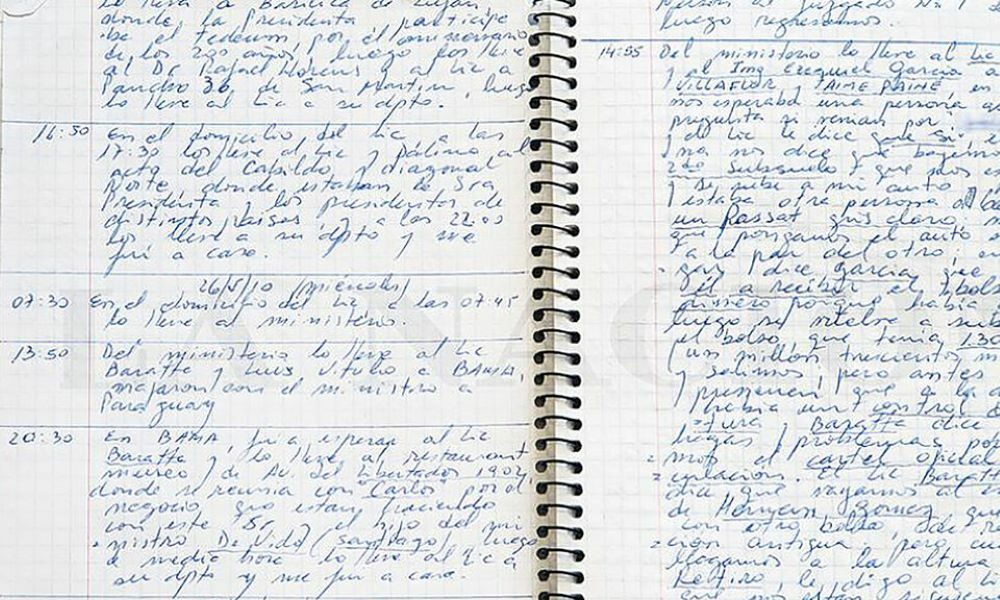 lo llevé a Basílica de Luján
donde la Presidenta participó
de el tedeum, por el aniversario
de los 200 años, luego los llevé
al Dr Rafael Llorens y al Lic a
Pancho 36, de San Martín, luego
lo llevé al Lic a su dpto.
16:50 En el domicilio del Lic, a las
17:30 los llevé al Lic y Palina al
acto del Cabildo, y diagonal
Norte donde estaban la Sra
Presidenta y los presidentes de
distintos países y a las 22:00
los llevé a su dpto y me
fui a casa.
26/5/10 (miércoles)
07:30 En el domicilio del Lic a las 07:45
lo llevé al ministerio.
13:50 Del ministerio lo llevé al Lic
Baratta y Luis Vitullo a BAMA,
viajaron con el ministro a
Paraguay
20:30 En BAMA, fui a esperar al Lic
Baratta y lo llevé al restaurant
museo, de Av. del Libertador 1902,
donde se reunia con "Carlos" por el
negocio que estan haciendo
con este Sr, y el hijo del mi
nistro De Vido (Santiago), luego
a media hora lo llevé al Lic a
su dpto y me fui a casa.
luego regresamos.
14:55 Del ministerio lo llevé al Lic
y al Ing Ezequiel García a
VILLAFLOR, JAIME PAINE, en
nos esperaba una persona
pregunta si venian por
el Lic le dice que si, e
nos dice que bajemos
2do Subsuelo y que nos
y se sube a mi auto
estaba otra persona
un Passat gris claro.
que pongamos el auto
a la par del otro, en
gar, dice Garcia, que
el a recibir el bolso
dinero porque habia
luego se vuelve a sub
el bolso que tenia 1.30
(un millón trescientos m
y salimos, pero antes
presumen, que a la
habia un control
Baratta dice
problemas por
el cartel oficial
Baratt
dice que vayamos al
de Hernan Gomez que
con otro bolso
ción antigua. pero cu
llegamos a la altura
Retiro, le digo al Li
que nos estan siguien
LA NACION